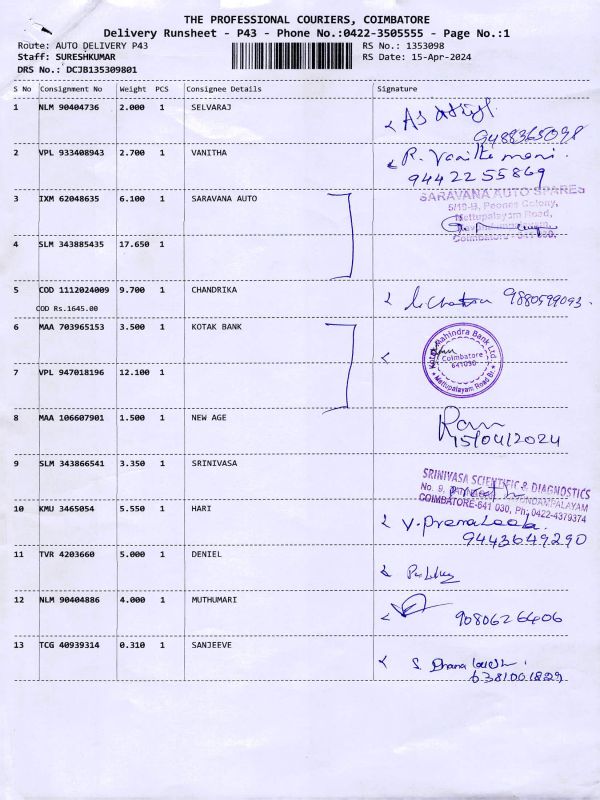 THE PROFESSIONAL COURIERS, COIMBATORE
Delivery Runsheet - P43 - Phone No.:0422-3505555 - Page No.:1
Route: AUTO DELIVERY P43
Staff: SURESHKUMAR
DRS No.: DCJB135309801
RS No.: 1353098
RS Date: 15-Apr-2024
S No Consignment No Weight PCS Consignee Details Signature
1 NLM 90404736 2.000 1 SELVARAJ
9488365098
2 VPL 933408943 2.700 1 VANITHA R. Vanitha mani.
9442255869
3 IXM 62048635 6.100 1 SARAVANA AUTO
SARAVANA AUTO SPARES
5/19-B, Peones Colony,
Mettupalayam Road,
Coimbatore - 641 030.
4 SLM 343885435 17.650 1
5 COD 1112024009 9.700 1 CHANDRIKA 9880599093.
COD Rs.1645.00
6 MAA 703965153 3.500 1 KOTAK BANK
Kotak Mahindra Bank Ltd.
Coimbatore
641030
Mettupalayam Road Br.
7 VPL 947018196 12.100 1
8 MAA 106607901 1.500 1 NEW AGE Ram
15/04/2024
9 SLM 343866541 3.350 1 SRINIVASA
SRINIVASA SCIENTIFIC & DIAGNOSTICS
No. 9,
COIMBATORE-641 030, Ph: 0422-4379374
10 KMU 3465054 5.550 1 HARI V. Premaleela.
9443649290
11 TVR 4203660 5.000 1 DENIEL
12 NLM 90404886 4.000 1 MUTHUMARI 9080626406
13 TCG 40939314 0.310 1 SANJEEVE S.
6381001829